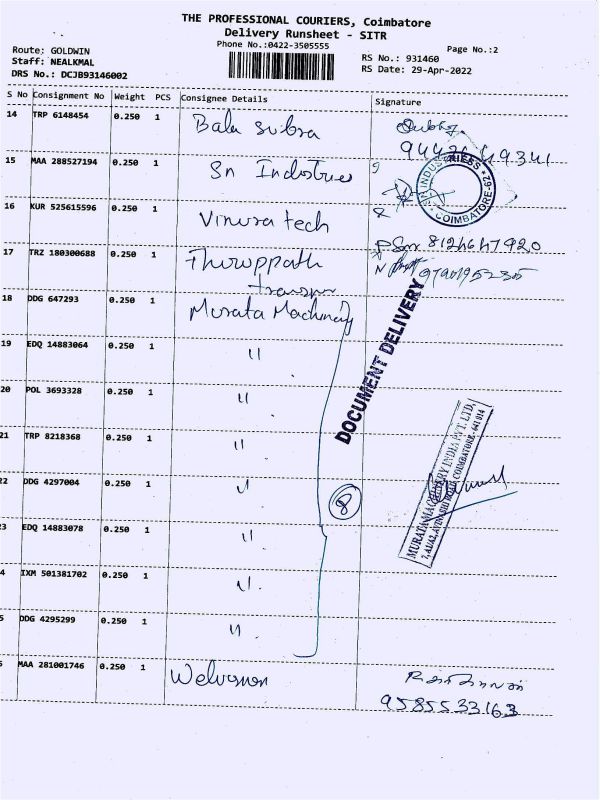 THE PROFESSIONAL COURIERS, Coimbatore
Delivery Runsheet - SITR
Phone No.:0422-3505555
Page No.:2
Route: GOLDWIN
Staff: NEALKMAL
DRS No.: DCJB93146002
RS No.: 931460
RS Date: 29-Apr-2022
S No Consignment No Weight PCS Consignee Details Signature
14 TRP 6148454 0.250 1 Balu Subra
15 MAA 288527194 0.250 1 Sn Industries
SRI INDUSTRIES * COIMBATORE-62 *
16 KUR 525615596 0.250 1 Vinura tech
8124647920
17 TRZ 180300688 0.250 1 Thiruppath
transport
18 DDG 647293 0.250 1 Murata Machinery
DOCUMENT DELIVERY
19 EDQ 14883064 0.250 1 "
20 POL 3693328 0.250 1 "
21 TRP 8218368 0.250 1 "
MURATA MACHINERY INDIA PVT. LTD,
COIMBATORE - 641 014
22 DDG 4297004 0.250 1 "
8
23 EDQ 14883078 0.250 1 "
4 IXM 501381702 0.250 1 "
5 DDG 4295299 0.250 1 "
MAA 281001746 0.250 1
9585533163